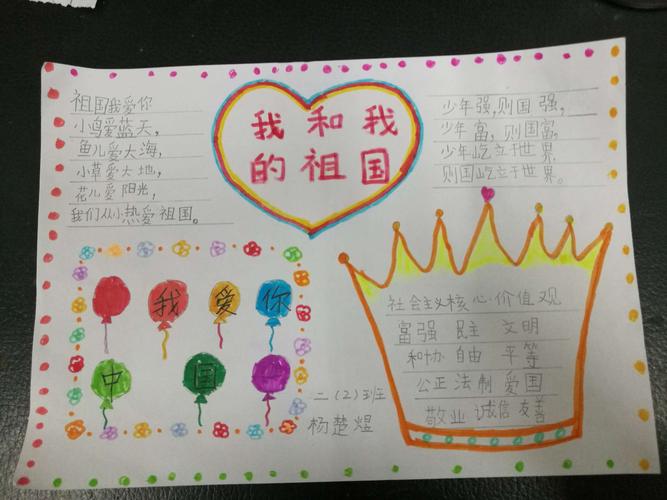 祖国我爱你
小鸟爱蓝天，
鱼儿爱大海，
小草爱大地，
花儿爱阳光，
我们从小热爱祖国。
我和我
的祖国
少年强，则国强，
少年富，则国富，
少年屹立于世界，
则国屹立于世界。
我爱你
中国
社会主义核心价值观
富强 民主 文明
和协 自由 平等
公正 法制 爱国
敬业 诚信 友善
二（2）班
杨楚煜